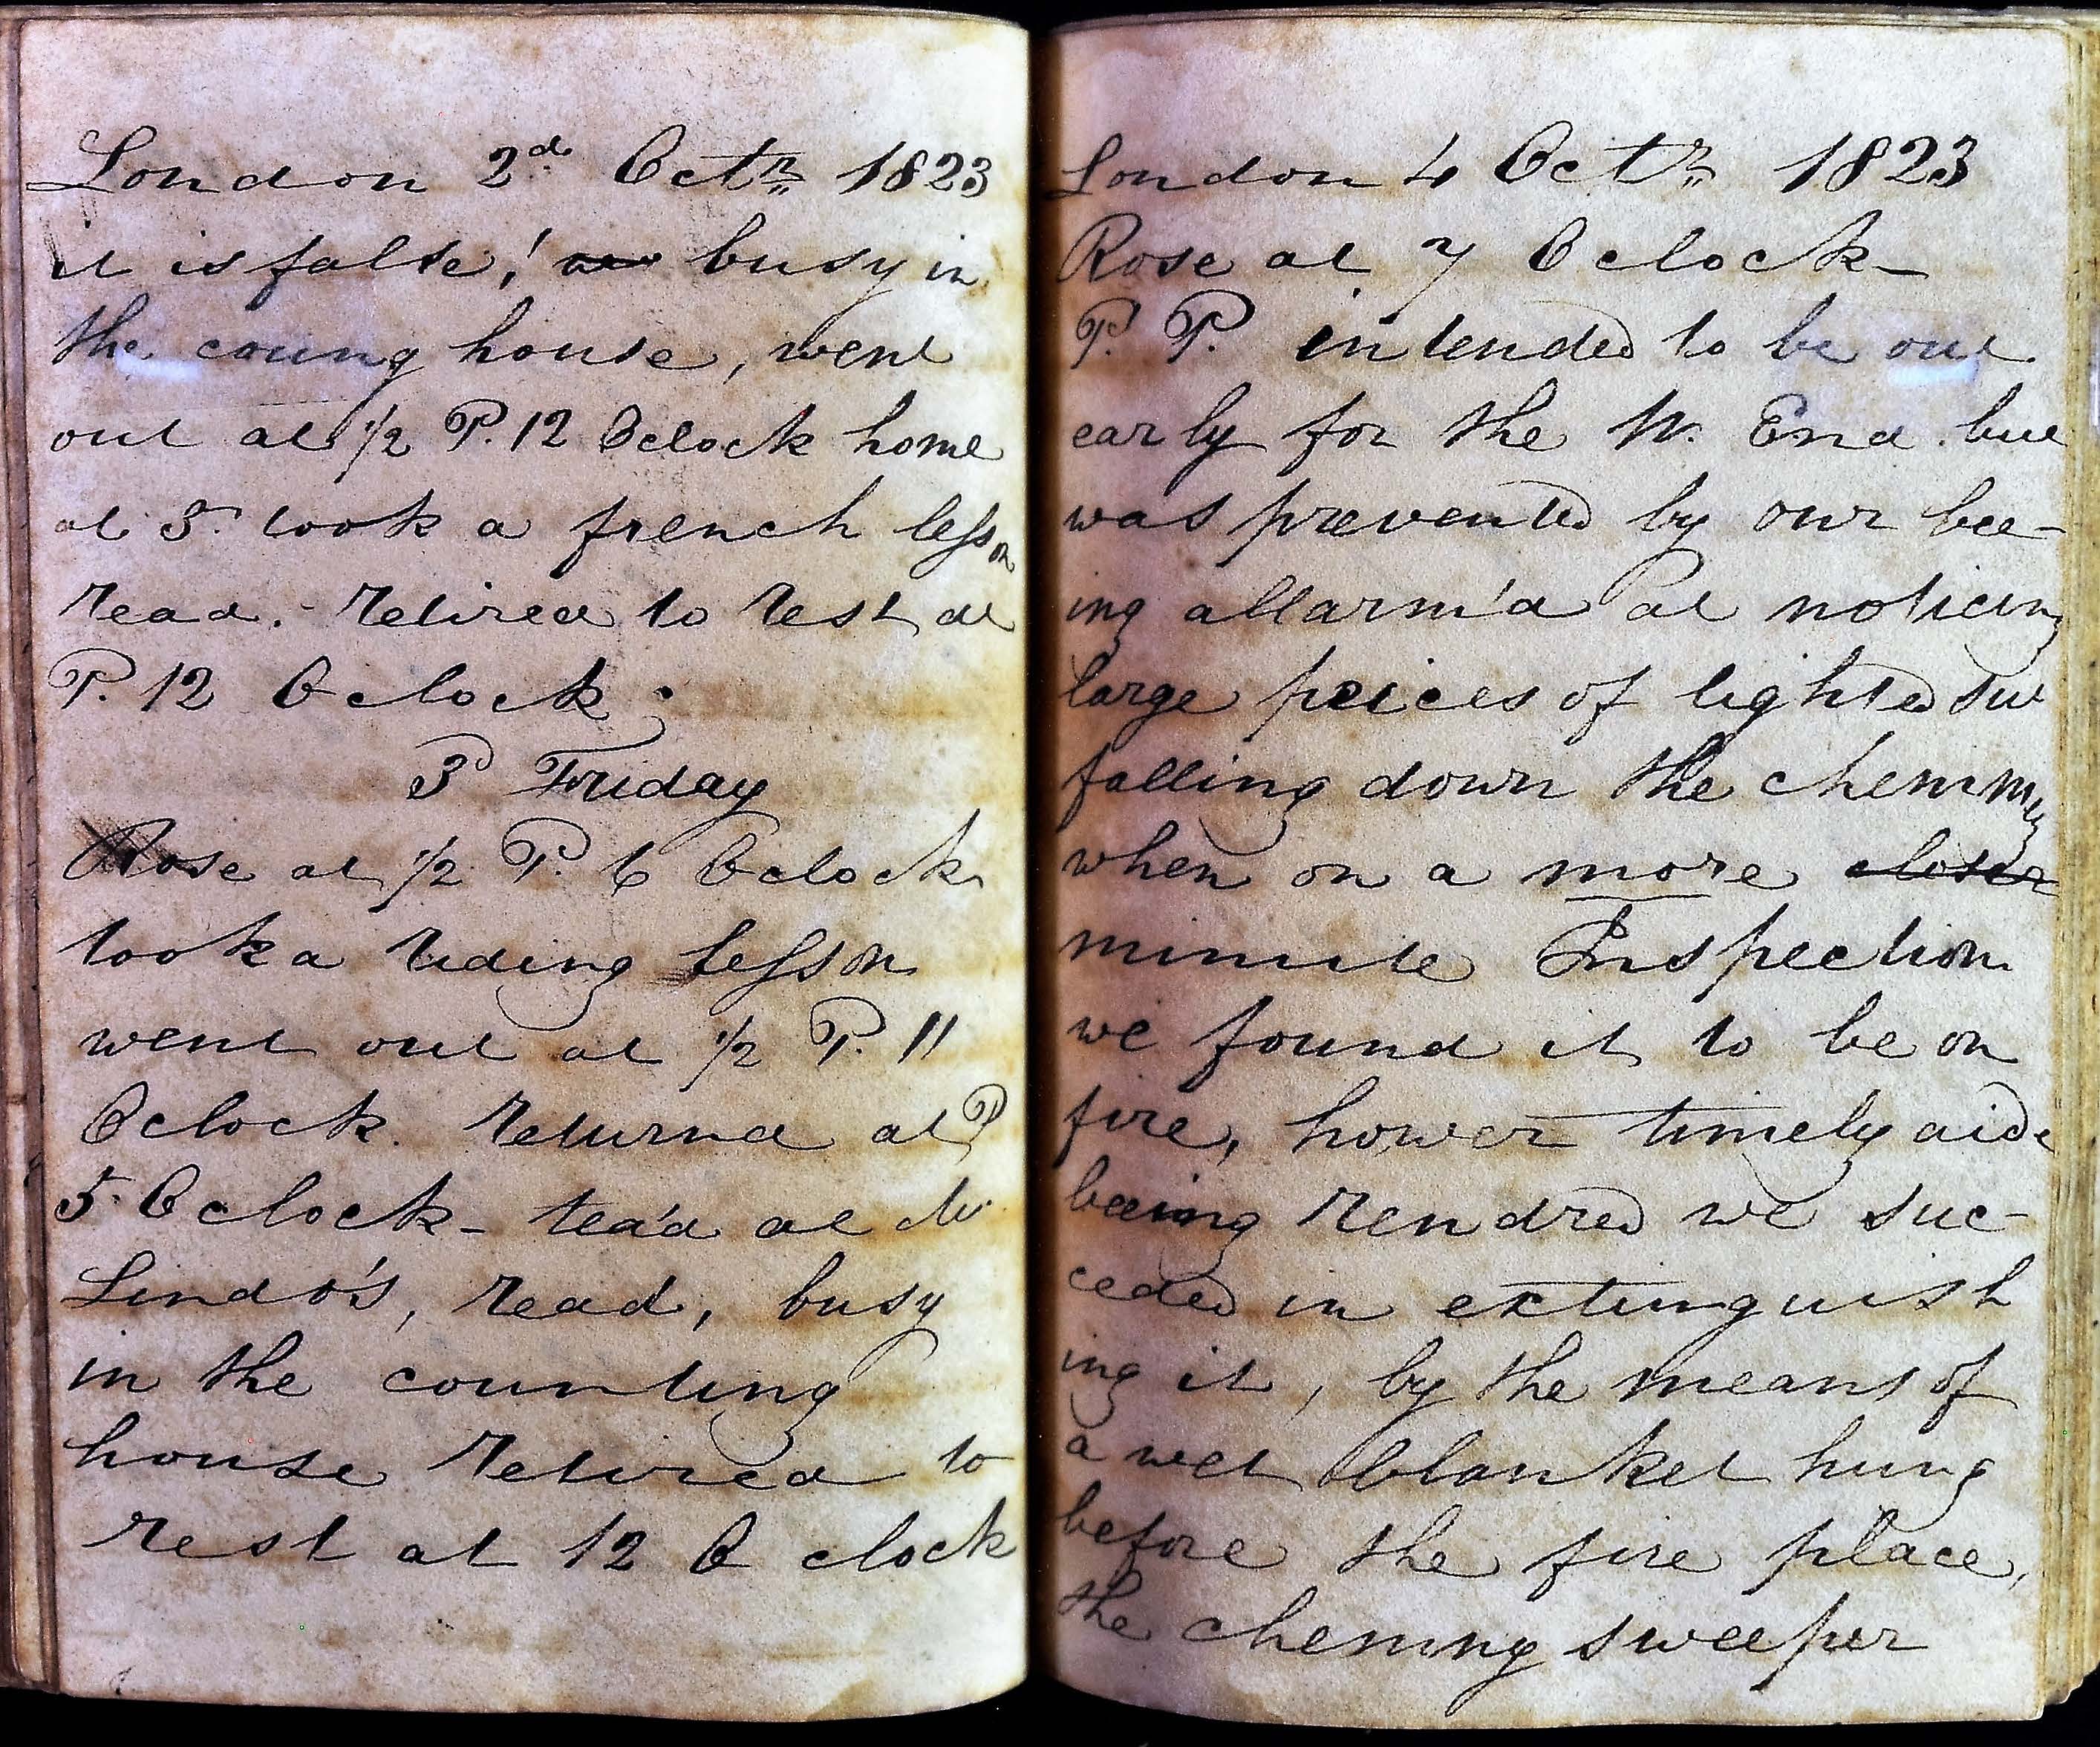 London 2d Octr 1823
it is false! busy in
the couing house, went
out at 1/2 P. 12 Oclock home
at 5. took a french lesson
read. - retired to rest at
P. 12 Oclock.
3 Friday
Rose at 1/2 P. 6 Oclock
took a riding lesson
went out at 1/2 P. 11
Oclock. returnd at P
5. Oclock - tea'd at
Lindo's, read, busy
in the counting
house retired to
rest at 12 O clock
London 4 Octr 1823
Rose at 7 Oclock -
P. P. intended to be out
early for the W. End. but
was prevented by our bee-
ing allarm'd at noticing
large peices of lighted sut
falling down the chemmny
when on a more closer
minute Inspection
we found it to be on
fire, hower timely aide
beeing rendred we suc-
ceded in extinguish
ing it, by the means of
a wet blanket hung
before the fire place,
the chemny sweeper